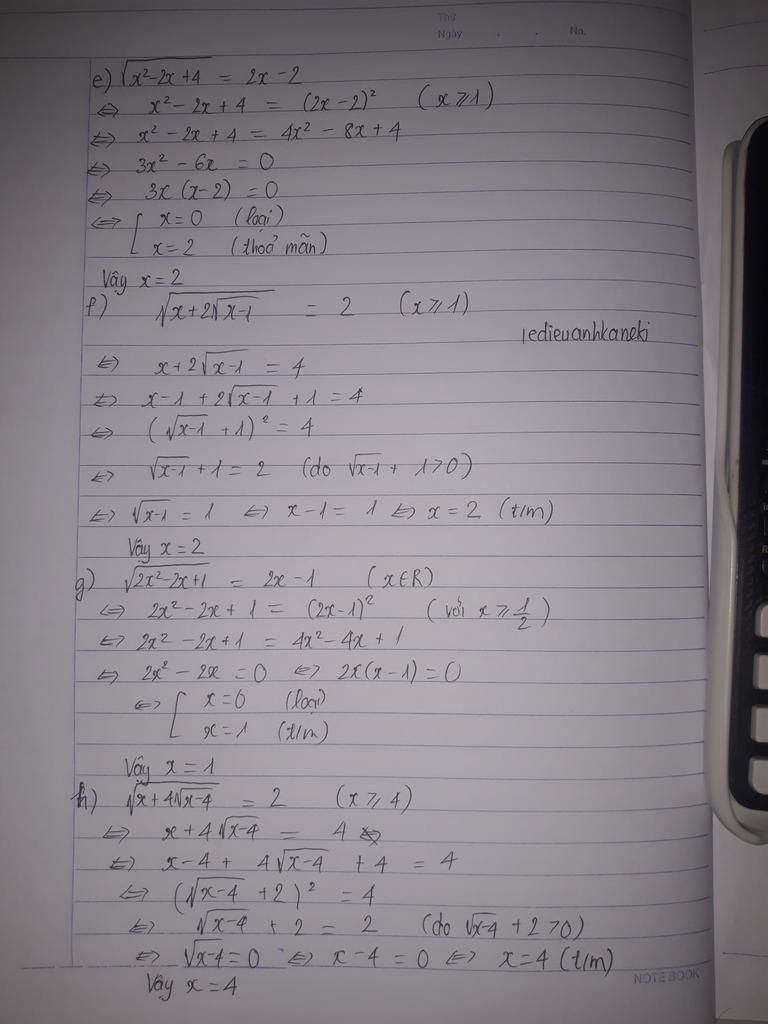 Thứ
Ngày . . No.
e) √(x²-2x+4) = 2x-2
⇔ x² - 2x + 4 = (2x-2)² (x ≥ 1)
⇔ x² - 2x + 4 = 4x² - 8x + 4
⇔ 3x² - 6x = 0
⇔ 3x (x-2) = 0
⇔ [ x=0 (loại)
x=2 (thoả mãn)
Vậy x=2
f) √(x+2√(x-1)) = 2 (x ≥ 1)
ledieuanhkaneki
⇔ x+2√(x-1) = 4
⇔ x-1 + 2√(x-1) + 1 = 4
⇔ (√(x-1) + 1)² = 4
⇔ √(x-1) + 1 = 2 (do √(x-1) + 1 > 0)
⇔ √(x-1) = 1 ⇔ x-1 = 1 ⇔ x = 2 (t/m)
Vậy x = 2
g) √(2x²-2x+1) = 2x-1 (x∈R)
⇔ 2x²-2x+1 = (2x-1)² (với x ≥ 1/2)
⇔ 2x² -2x+1 = 4x²-4x+1
⇔ 2x² - 2x = 0 ⇔ 2x(x-1) = 0
⇔ [ x=0 (loại)
x=1 (t/m)
Vậy x = 1
h) √(x+4√(x-4)) = 2 (x ≥ 4)
⇔ x+4√(x-4) = 4
⇔ x-4 + 4√(x-4) + 4 = 4
⇔ (√(x-4) + 2)² = 4
⇔ √(x-4) + 2 = 2 (do √(x-4) + 2 > 0)
⇔ √(x-4) = 0 ⇔ x-4 = 0 ⇔ x=4 (t/m)
Vậy x = 4
NOTE BOOK